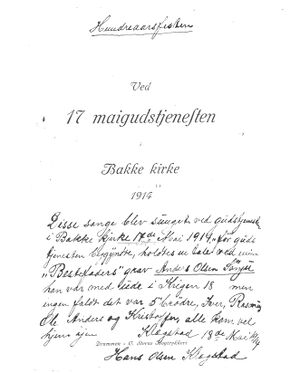 Hundreaarsfesten
Ved
17 maigudstjenesten
i
Bakke kirke
1914
Disse sange blev sunget ved gudstjeneste
i Bakke kirke 17de Mai 1914. før guds
tjenesten begyndte, holdtes en tale ved min
"Bestefaders" grav Anders Olsen
han var med ude i Krigen 18 men
ingen faldt det var 5 brødre, Iver, Rasmus
Ole Anders og Kristoffer, alle kom vel
hjem igjen Klogstad 18de Mai
Drammen – C. Steens Bogtrykkeri
Hans Olsen Klogstad